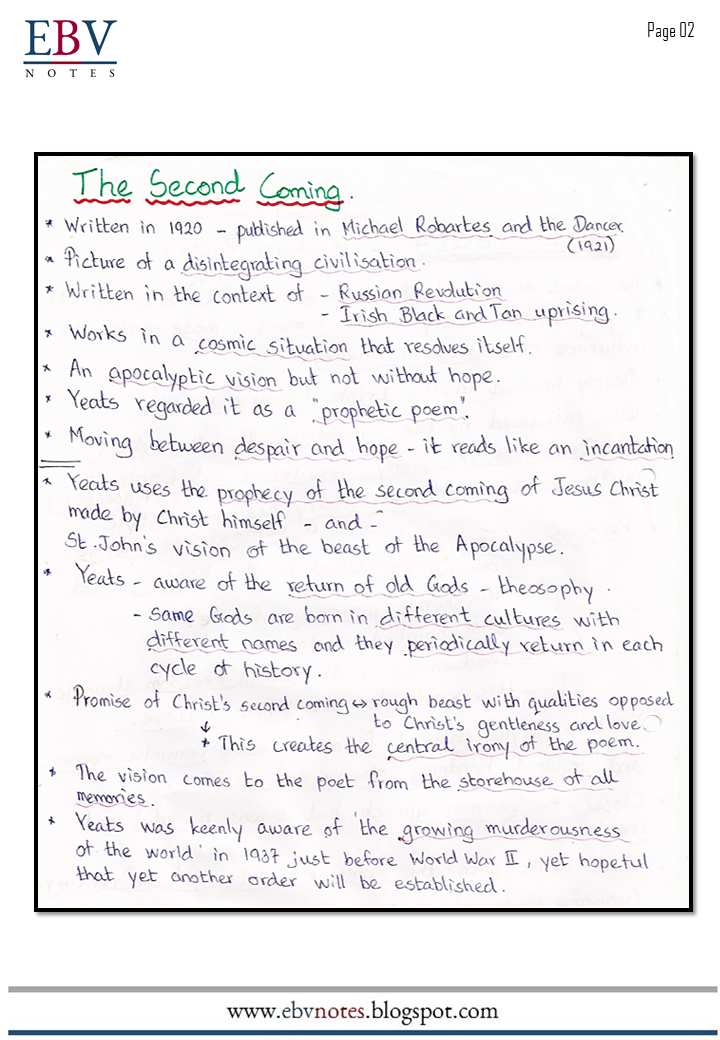 EBV
NOTES
Page 02
The Second Coming.
* Written in 1920 - published in Michael Robartes and the Dancer.
(1921)
* Picture of a disintegrating civilisation.
* Written in the context of - Russian Revolution
- Irish Black and Tan uprising.
* Works in a cosmic situation that resolves itself.
* An apocalyptic vision but not without hope.
* Yeats regarded it as a "prophetic poem".
* Moving between despair and hope - it reads like an incantation
* Yeats uses the prophecy of the second coming of Jesus Christ
made by Christ himself - and -
St. John's vision of the beast of the Apocalypse.
* Yeats - aware of the return of old Gods - theosophy.
- same Gods are born in different cultures with
different names and they periodically return in each
cycle of history.
* Promise of Christ's second coming ↔ rough beast with qualities opposed
to Christ's gentleness and love.
↓
* This creates the central irony of the poem.
* The vision comes to the poet from the storehouse of all
memories.
* Yeats was keenly aware of 'the growing murderousness
of the world' in 1937 just before World War II, yet hopeful
that yet another order will be established.
www.ebvnotes.blogspot.com